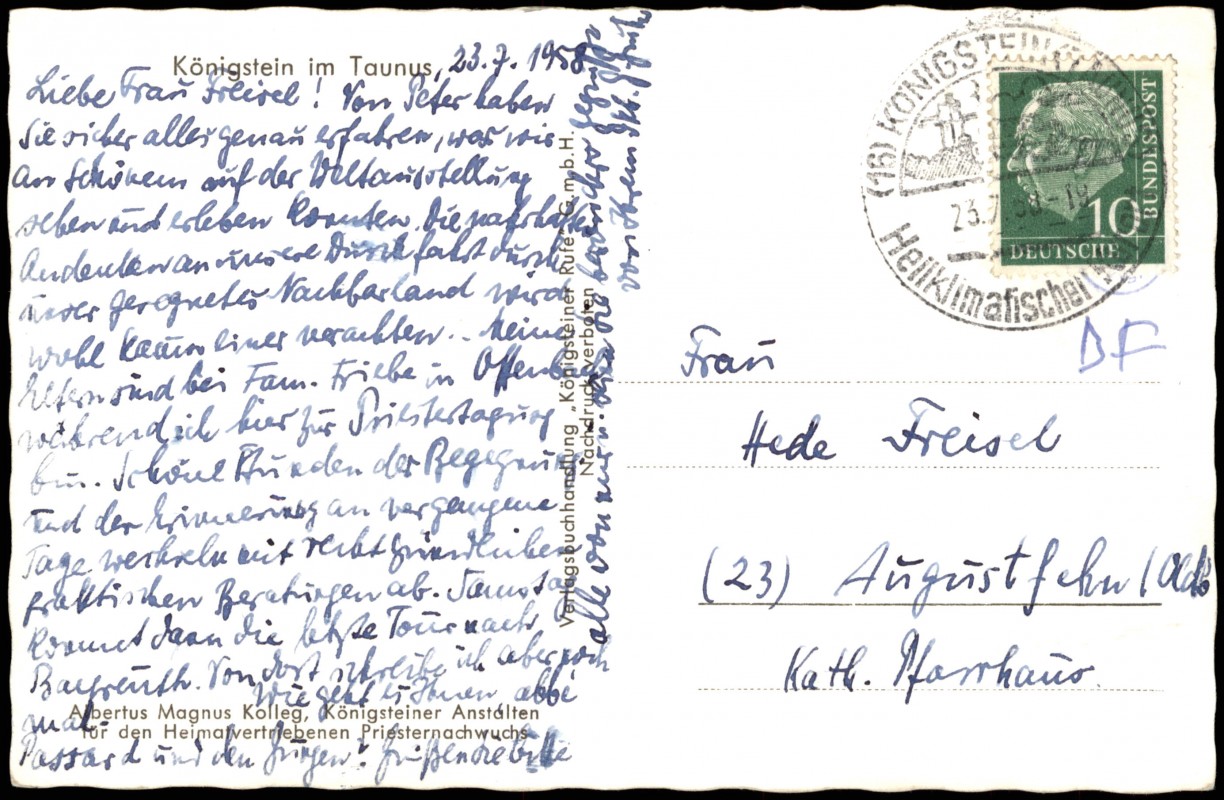 Königstein im Taunus, 23.7.1958
Liebe Frau Freisel! Von Peter haben
Sie sicher alles genau erfahren, was wir
an Schönem auf der Weltausstellung
sehen und erleben konnten. Die nahrhaften
Andenken an unsere Durchfahrt durch
unser geregnetes Nachbarland wird
wohl kaum einer verachten. Meine
Eltern sind bei Fam. Friebe in Offenbach
während ich hier zur Priestertagung
bin. Schöne Stunden der Begegnung
und der Erinnerung an vergangene
Tage wechseln mit recht gründlichen
praktischen Beratungen ab. Samstag
kommt dann die letzte Tour nach
Bayreuth. Von dort schreibe ich aber noch
mal.
Wie geht es Ihnen, abbé
Passard und den Jungen? Grüßen Sie bitte
alle von mir u. seien Sie besonders gegrüßt
von Ihrem
Albertus Magnus Kolleg, Königsteiner Anstalten
für den Heimatvertriebenen Priesternachwuchs
Verlagsbuchhandlung „Königsteiner Rufe" G.m.b.H.
Nachdruck verboten
(16) KÖNIGSTEIN (TAUNUS)
23.7.58-19
Heilklimatischer
10
DEUTSCHE
BUNDESPOST
DF
Frau
Hede Freisel
(23) Augustfehn / Oldb
Kath. Pfarrhaus